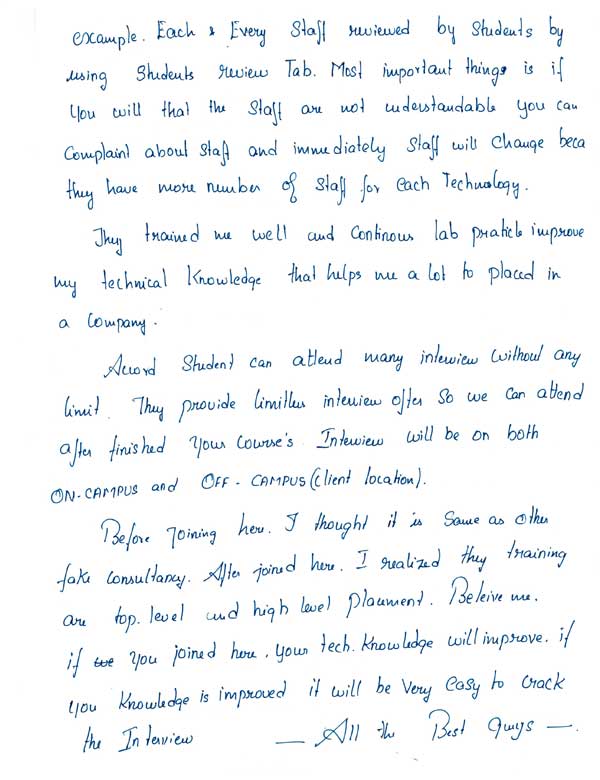 example. Each & Every Staff reviewed by Students by
using Students review Tab. Most important things is if
you will that the Staff are not understandable you can
Complaint about Staff and immediately Staff will Change beca
they have more number of Staff for each Technology.
They trained me well and Continous lab praticle improve
my technical Knowledge that helps me a lot to placed in
a Company.
Accord Student can attend many interview without any
limit. They provide limitless interview offer So we can attend
after finished your Course's Interview will be on both
ON-CAMPUS and OFF-CAMPUS (client location).
Before Joining here. I thought it is Same as other
fake consultancy. After joined here. I realized they training
are top. level and high level placement. Beleive me.
if we you joined here, your tech. Knowledge will improve. if
you Knowledge is improved it will be very easy to crack
the Interview — All the Best guys —